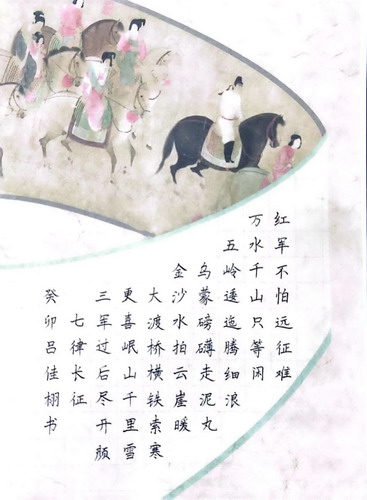 红军不怕远征难
万水千山只等闲
五岭逶迤腾细浪
乌蒙磅礴走泥丸
金沙水拍云崖暖
大渡桥横铁索寒
更喜岷山千里雪
三军过后尽开颜
七律长征
癸卯吕佳栩书